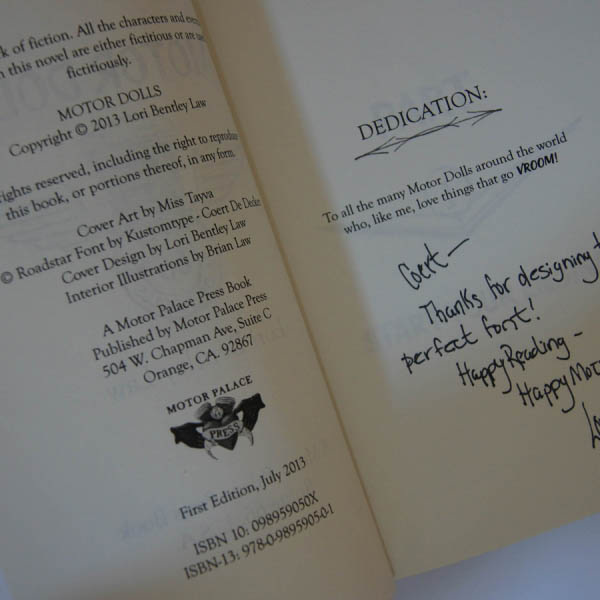 k of fiction. All the characters and
n this novel are either fictitious or are
fictitiously.
MOTOR DOLLS
Copyright © 2013 Lori Bentley Law
rights reserved, including the right to reproduce
this book, or portions thereof, in any form.
Cover Art by Miss Tayva
© Roadstar Font by Kustomtype - Coert De Decker
Cover Design by Lori Bentley Law
Interior Illustrations by Brian Law
A Motor Palace Press Book
Published by Motor Palace Press
504 W. Chapman Ave, Suite C
Orange, CA. 92867
MOTOR PALACE
PRESS
First Edition, July 2013
ISBN 10: 098959050X
ISBN-13: 978-0-9895905-0-1
DEDICATION:
To all the many Motor Dolls around the world
who, like me, love things that go VROOM!
Coert—
Thanks for designing t
perfect font!
Happy Reading -
Happy Moto
Lo